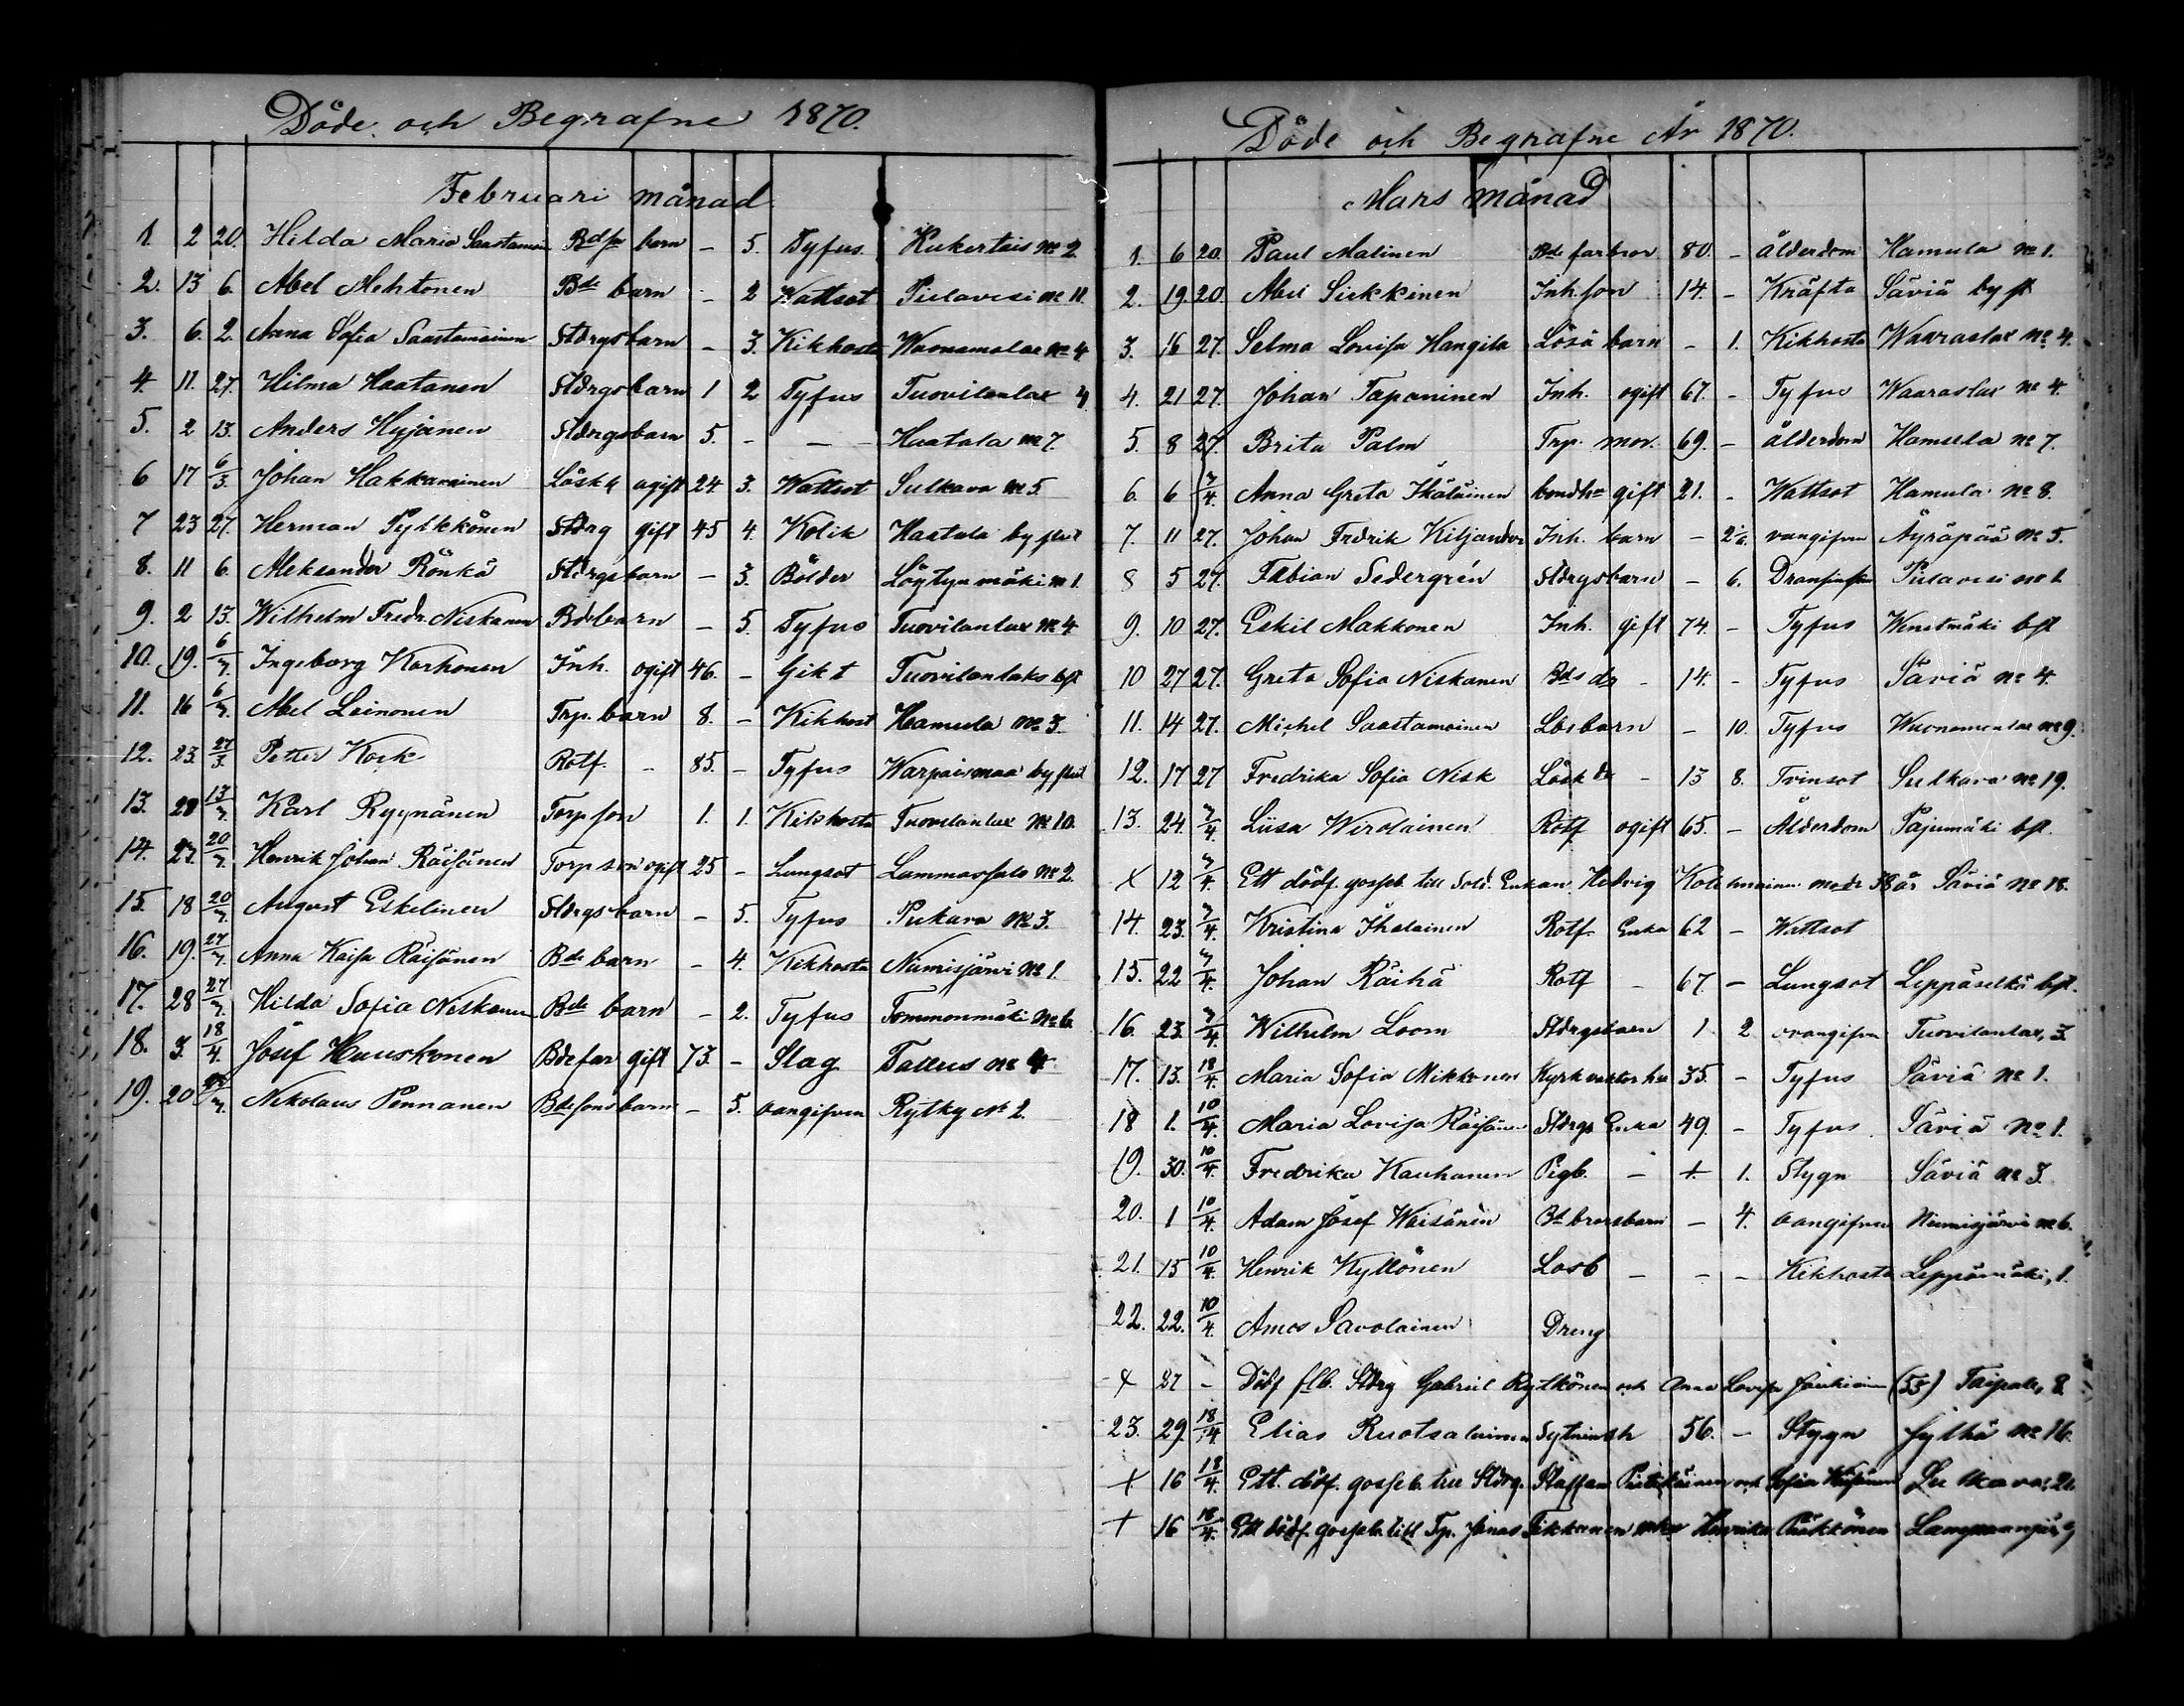 Döde och Begrafne 1870.
Februari månad
1. 2 20. Hilda Maria Saastamoin Bdsn barn - 5. Tyfus. Kukertais No 2.
2. 13 6. Abel Mehtonen Bde barn - 2 Wattsot Pielavesi No 11.
3. 6. 2. Anna Sofia Saastamoinen Stdrgsbarn - 3. Kikhosta Wuonamolax No 4
4. 11. 27. Hilma Haatanen Stdrgsbarn 1 2 Tyfus Tuovilanlax 4
5. 2 13. Anders Hyjänen Stdrgsbarn 5. - - Haatala No 7.
6 17 6/3. Johan Hakkarainen Lösk ogift 24 3. Wattsot Sulkava No 5.
7 23 27. Herman Pylkkönen Stdrg gift 45 4. Kolik Haatala by
8. 11 6. Aleksander Rönkä Stdrgsbarn - 3. Bölder Löytynmäki No 1.
9. 2 13. Wilhelm Fredr. Niskanen Bdebarn - 5. Tyfus Tuovilanlax No 4.
10. 19. 6/3. Ingeborg Korhonen Inh. ogift 46. - Gikt Tuovilanlaks bfl
11. 16 6/3. Abel Leinonen Trp. barn 8. - Kikhost Hamula No 3.
12. 23. 27/3. Petter Kock Rotf. - 85. - Tyfus Warpaismaa by
13. 28 13/3. Karl Ryynänen Torpson 1. 1. Kikhosta Tuovilanlax No 10.
14. 23. 20/3. Henrik Johan Räisänen Torpson ogift 25 - Lungsot Lammassalo No 2.
15. 18 20/3. August Eskelinen Stdrgsbarn - 5. Tyfus Pukara No 3.
16. 19. 27/3. Anna Kaisa Räisänen Bde barn - 4. Kikhosta Niemisjärvi No 1.
17. 28 27/3. Hilda Sofia Niskanen Bde barn - 2. Tyfus Tommonmäki No 6.
18. 3. 18/4. Josef Huuskonen Bdefar gift 73. - Slag Tallus No 4.
19. 20 Nikolaus Pennanen Bdesonsbarn - 5. oangifven Rytky No 2.
Döde och Begrafne År 1870.
Mars månad
1. 6 20. Paul Malinen Bde farbror 80. - ålderdom Hamula No 1.
2. 19 20. Abel Sickkinen Inh. son 14. - Kräfta Säviä by fl
3. 16 27. Selma Lovisa Hangila Lösa barn - 1. Kikhosta Waaraslax No 4.
4. 21 27. Johan Tapaninen Inh. ogift 67. - Tyfus Waaraslax No 4.
5. 8 27. Brita Palm Trp. mor. 69. - ålderdom Hamula No 7.
6. 6 3/4. Anna Greta Ikäläinen bondhu gift 21. - Wattsot Hamula No 8.
7. 11 27. Johan Fredrik Kiljander Inh. barn - oangifven Äyräpää No 5.
8 5 27. Fabian Sedergrén Stdrgsbarn - 6. Pielavesi No 1
9. 10 27. Eskil Makkonen Inh. gift 74. - Tyfus Wenetmäki bfl
10 27 27. Greta Sofia Niskanen Bds dr - 14. - Tyfus Säviä No 4.
11. 14 27. Michel Saastamoinen Lösbarn - 10. Tyfus Wuonamonlax No 9.
12. 17 27 Fredrika Sofia Nisk Lösk dr - 13 8. Tvinsot Sulkava No 19.
13. 24. 3/4. Liisa Wirolainen Rotf ogift 65. - Ålderdom Pajumäki bfl.
X 12 3/4. Ett dödf. gosseb. till Sold. Enkan Hedvig Kolehmainen modr 38 år Säviä No 18.
14. 23. 3/4. Kristina Ihalainen Rotf. Enka 62 - Wattsot
15. 22 3/4. Johan Räihä Rotf - 67. - Lungsot Leppäselkä bfl.
16. 23. 3/4. Wilhelm Loom Stdrgsbarn 1 2 oangifven Tuovilanlax, 3.
17. 13. 18/4. Maria Sofia Mikkonen Kyrkvaktar hu 35. - Tyfus Säviä No 1.
18 1. 10/4. Maria Lovisa Räisänen Stdrgs Enka 49. - Tyfus. Säviä No 1.
19. 30. 10/4. Fredrika Kauhanen Pigb. - + 1. Stygn Säviä No 3.
20. 1 10/4. Adam Josef Waisänen Bd brorsbarn - 4. oangifven Niemisjärvi No 6.
21. 15 10/4. Henrik Kyllönen Losb - - - Kikhosta Leppämäki, 1.
22. 22. 10/4. Amos Savolainen Dreng
X 27 - Dödf flb. Stdrg Gabriel Rytkönen och Anna Lovisa (35) Taipale, 8.
23. 29. 18/4. Elias Ruotsalainen Sytninsh 56. - Stygn Jylhä No 16.
+ 16 18/4. Ett. dödf. gosseb. till Stdrg. Staffan och Sofia Sulkava, 21.
+ 16 18/4. Ett dödf. gosseb. till Tp. Jonas Tikkanen Henrika Pääkkönen